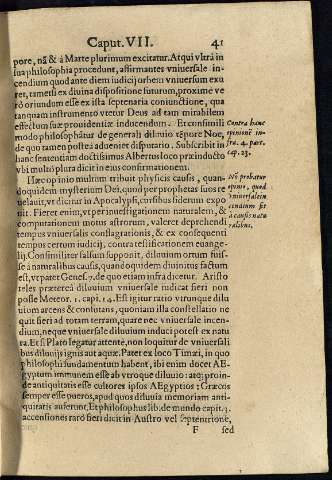 Caput. VII. 41
pore, nā & à Marte plurimum excitatur. Atqui vltrà in
sua philosophia procedunt, affirmantes vniuersale in-
cendium quod ante diem iudicij orbem vniuersum exu
ret, tametsi ex diuina dispositione futurum, proximè ve
rò oriundum esse ex ista septenaria coniunctione, qua
tanquam instrumento vtetur Deus ad tam mirabilem
effectum suæ prouidentiæ inducendum. Et consimili
modo philosophātur de generali diluuio tēpore Noe,
de quo tamen postea adueniet disputatio. Subscribit in
hanc sententiam doctissimus Albertus loco præinducto
vbi multiplura dicit in eius confirmationem.
Contra hanc
opinionē in-
fra. 4. part.
cap. 23.
Hæc opinio multùm tribuit physicis causis, quan-
doquidem mysterium Dei, quod per prophetas suos re
uelauit, vt dicitur in Apocalypsi, cursibus siderum expo
nit. Fieret enim, vt per inuestigationem naturalem, &
computationem motus astrorum, valeret deprehendi
tempus vniuersalis conflagrationis, & ex consequenti
tempus certum iudicij, contra testificationem euange-
lij. Consimiliter falsum supponit, diluuium ortum fuis-
se à naturalibus causis, quandoquidem diuinitus factum
est, vt patet Genes. 7. de quo etiam infra dicetur. Aristo
teles prætereà diluuium vniuersale iudicat fieri non
posse Meteor. 1. capi. 14. Est igitur ratio vtrunque dilu
uium arcens & confutans, quoniam illa constellatio ne
quit fieri ad totam terram, quare nec vniuersale incen-
dium, neque vniuersale diluuium induci potest ex natu
ra. Et si Plato legatur attentè, non loquitur de vniuersali
bus diluuijs ignis aut aquæ. Patet ex loco Timæi, in quo
philosophi fundamentum habent, ibi enim docet AE-
gyptum immunem esse ab vtroque diluuio: atq; proin-
de antiquitatis esse cultores ipsos AEgyptios; Græcos
semper esse pueros, apud quos diluuia memoriam anti-
quitatis auferunt. Et philosophus lib. de mundo capit. 3.
accensiones rarò fieri dicit in Austro vel septentrione,
Nō probatur
opinio, quod
vniuersale in
cendium sit
à causis natu
ralibus.
F sed